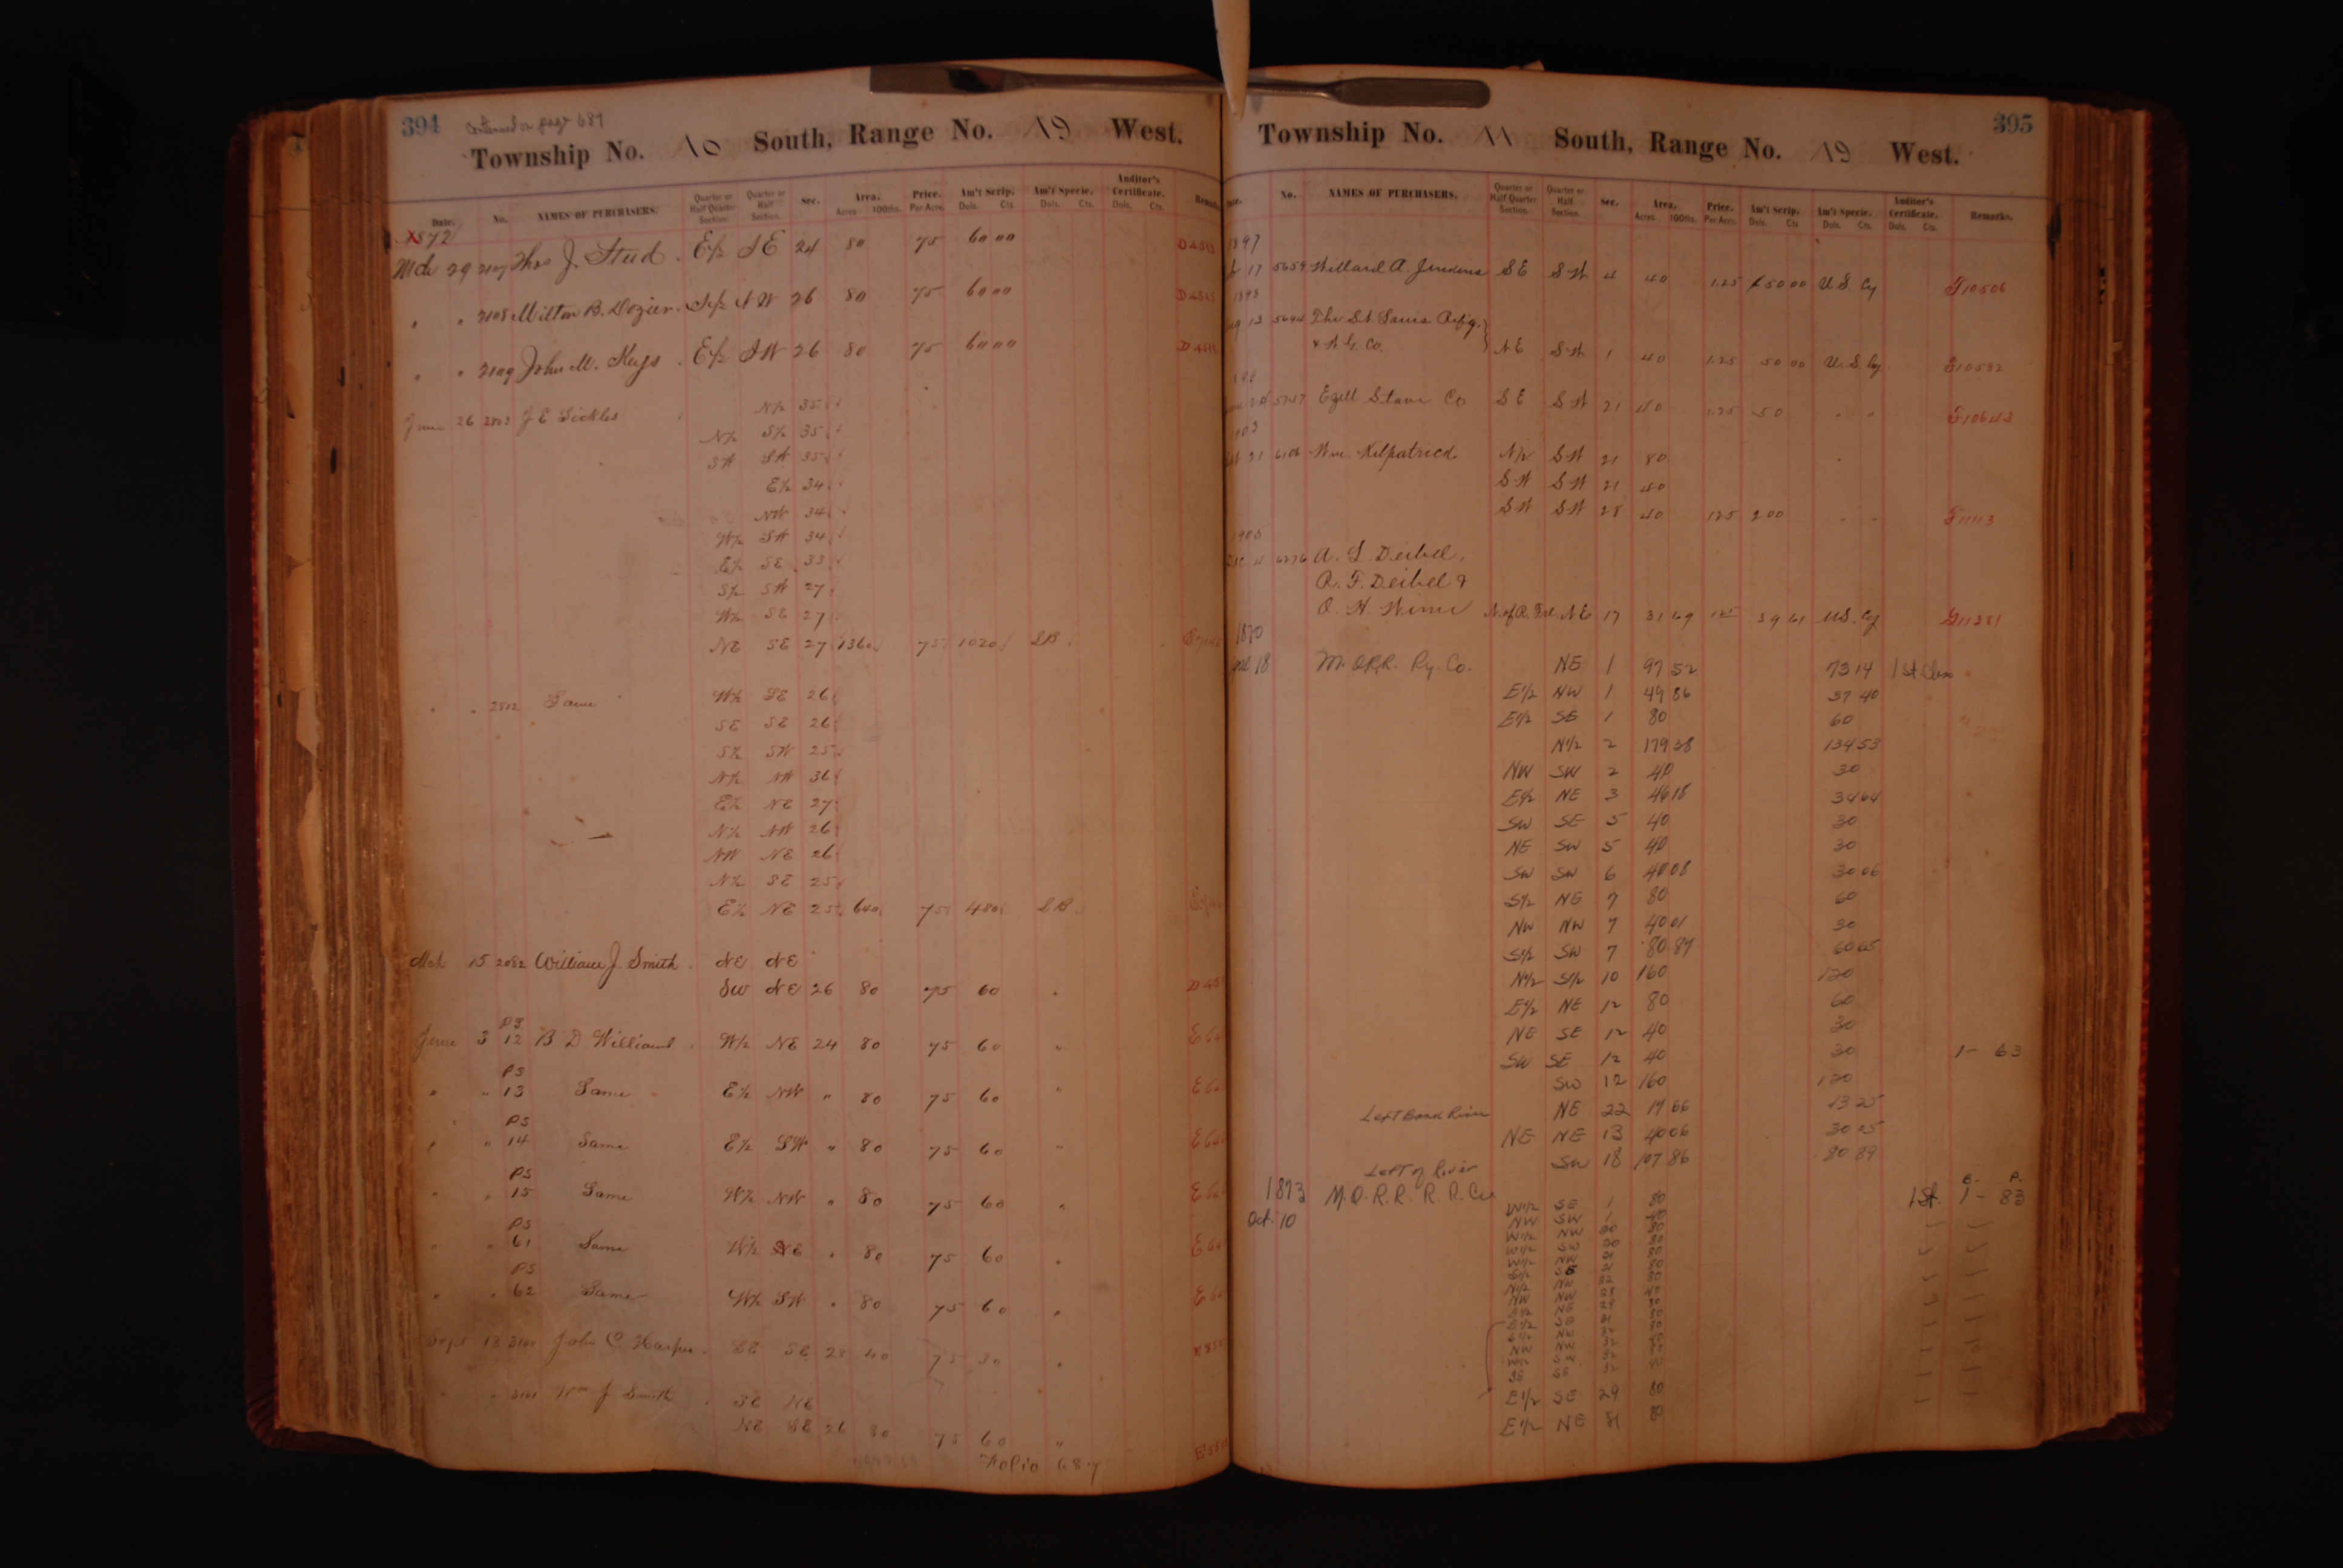 394 Continued on page 687
Township No. 10 South, Range No. 19 West.
Date. No. NAMES OF PURCHASERS. Quarter or Half Quarter Section. Quarter or Half Section. Sec. Area. Acres 100ths. Price. Per Acre. Am't Scrip. Dols. Cts. Am't Specie. Dols. Cts. Auditor's Certificate. Dols. Cts.
1872
Mch 29 2107 Thos J. Stud E½ SE 24 80 75 60 00
" " 2108 Milton B. Dozier NW 26 80 75 60 00
" " 2109 John M. Keys E½ SW 26 80 75 60 00
June 26 2803 J E Sickles N½ 35
N½ S½ 35
SW SW 35
E½ 34
NW 34
W½ SW 34
E½ SE 33
S½ SW 27
W½ SE 27
NE SE 27 1360 75 1020 SB
" " 2812 Same W½ SE 26
SE SE 26
S½ SW 25
N½ NW 36
E½ NE 27
N½ NW 26
NW NE 26
N½ SE 25
E½ NE 25 640 75 480 SB
Mch 15 2082 William J. Smith NE NE
SW NE 26 80 75 60 "
PS
June 3 12 B D Williams W½ NE 24 80 75 60 "
PS
" " 13 Same E½ NW " 80 75 60 "
PS
" " 14 Same E½ SW " 80 75 60 "
PS
" " 15 Same W½ NW " 80 75 60 "
PS
" " 61 Same W½ SE " 80 75 60 "
PS
" " 62 Same W½ SW " 80 75 60 "
Sept 13 3100 John C Harper SE SE 28 40 75 30 "
" " 3101 Wm J Smith SE NE
NE SE 26 80 75 60 "
Folio 687
395
Township No. 11 South, Range No. 19 West.
Date. No. NAMES OF PURCHASERS. Quarter or Half Quarter Section. Quarter or Half Section. Sec. Area. Acres 100ths. Price. Per Acre. Am't Scrip. Dols. Cts. Am't Specie. Dols. Cts. Auditor's Certificate. Dols. Cts. Remarks.
1897
17 5659 Willard A. Jenkins SE SW 4 40 1.25 50 00 U.S. Cy F10506
1898
13 5694 The St. Louis Refg.
& W G. Co. NE SW 1 40 1.25 50 00 U.S. Cy F10582
24 5747 Ezell Stave Co SE SW 21 40 1.25 50 " " F10643
1903
21 6106 Wm. Kilpatrick N½ SW 21 80
SW SW 21 40
SW SW 28 40 1.25 200 " " F11113
1905
Dec 4 6276 A. L. Deibel,
A. F. Deibel &
O. H. Winn N. of R. Frl. NE 17 31 69 1.25 39 61 U.S. Cy G11281
1870
18 M. O & R.R. Ry. Co. NE 1 97 52 73 14 1st Class
E½ NW 1 49 86 37 40
E½ SE 1 80 60
N½ 2 179 38 134 53
NW SW 2 40 30
E½ NE 3 46 18 34 64
SW SE 5 40 30
NE SW 5 40 30
SW SW 6 40 08 30 06
S½ NE 7 80 60
NW NW 7 40 01 30
S½ SW 7 80.87 60 65
N½ S½ 10 160 120
E½ NE 12 80 60
NE SE 12 40 30
SW SE 12 40 30 1 - 63
SW 12 160 120
Left Bank River NE 22 17 66 13 25
NE NE 13 40 06 30 25
Left of River SW 18 107 86 80 89
B. P.
1873 M. O. R. R. R. R. Co W½ SE 1 80 1st. 1 - 83
Oct. 10 NW SW 1 40
W½ NW 20 80
W½ SW 20 80
W½ NW 21 80
SE 21 80
N½ NW 22 80
NW NW 28 40
E½ NE 29 80
E½ SE 31 80
NW 32
NW NW 32
W½ SW 32 80
SE SE 32 40
E½ SE 29 80
E½ NE 31 80